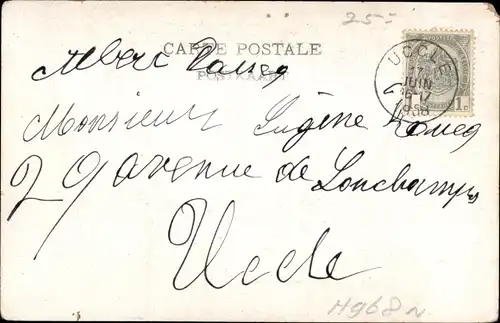 25-
CARTE POSTALE
POSTKAART
Albert
UCCLE
17
JUIN
1c
Monsieur Eugène
29 avenue de Lonchamps
Uccle
H968n